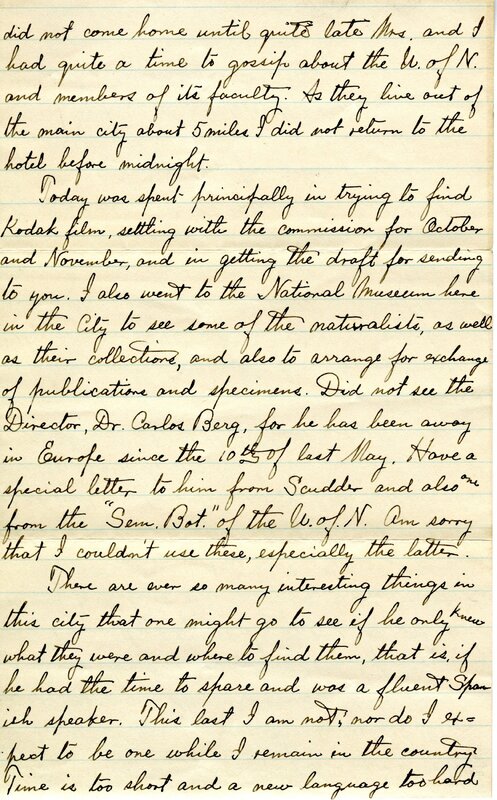 did not come home until quite late Mrs. and I
had quite a time to gossip about the U. of N.
and members of its faculty. As they live out of
the main city about 5 miles I did not return to the
hotel before midnight.
Today was spent principally in trying to find
Kodak film, settling with the commission for October
and November, and in getting the draft for sending
to you. I also went to the National Museum here
in the City to see some of the naturalists, as well
as their collections, and also to arrange for exchange
of publications and specimens. Did not see the
Director, Dr. Carlos Berg, for he has been away
in Europe since the 10th of last May. Have a
special letter to him from Scudder and also one
from the "Sem. Bot." of the U. of N. Am sorry
that I couldn't use these, especially the latter.
There are ever so many interesting things in
this city that one might go to see if he only knew
what they were and where to find them, that is, if
he had the time to spare and was a fluent Span
ish speaker. This last I am not; nor do I ex=
pect to be one while I remain in the country.
Time is too short and a new language too hard